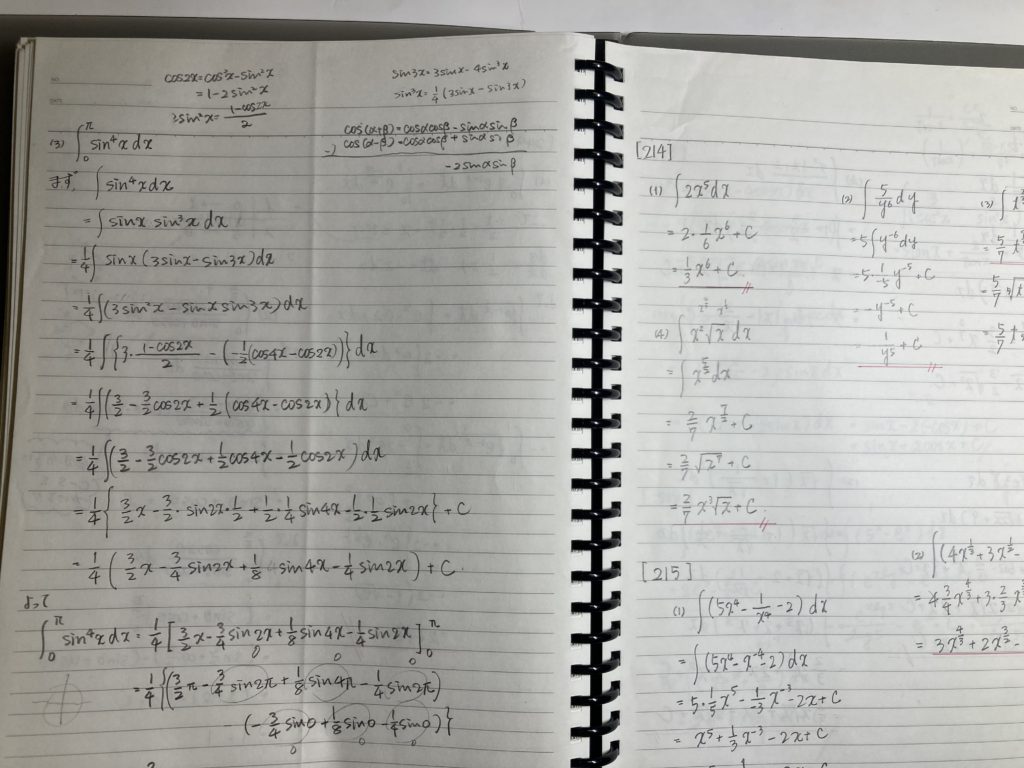 cos2x=cos²x-sin²x
=1-2sin²x
sin²x=\frac{1-cos2x}{2}
sin3x=3sinx-4sin³x
sin³x=\frac{1}{4}(3sinx-sin3x)
cos(α+β)=cosαcosβ-sinαsinβ
-) cos(α-β)=cosαcosβ+sinαsinβ
-2sinαsinβ
(3) ∫_0^π sin⁴x dx
まず, ∫sin⁴xdx
=∫sinx sin³x dx
=\frac{1}{4}∫sinx(3sinx-sin3x)dx
=\frac{1}{4}∫(3sin²x-sinx sin3x)dx
=\frac{1}{4}∫{3·\frac{1-cos2x}{2}-(-\frac{1}{2}(cos4x-cos2x))}dx
=\frac{1}{4}∫(\frac{3}{2}-\frac{3}{2}cos2x+\frac{1}{2}(cos4x-cos2x)}dx
=\frac{1}{4}∫(\frac{3}{2}-\frac{3}{2}cos2x+\frac{1}{2}cos4x-\frac{1}{2}cos2x)dx
=\frac{1}{4}{\frac{3}{2}x-\frac{3}{2}·sin2x·\frac{1}{2}+\frac{1}{2}·\frac{1}{4}sin4x-\frac{1}{2}·\frac{1}{2}sin2x}+C
=\frac{1}{4}(\frac{3}{2}x-\frac{3}{4}sin2x+\frac{1}{8}sin4x-\frac{1}{4}sin2x)+C.
よって
∫_0^π sin⁴xdx=\frac{1}{4}[\frac{3}{2}x-\frac{3}{4}sin2x+\frac{1}{8}sin4x-\frac{1}{4}sin2x]_0^π
0 0 0
=\frac{1}{4}{(\frac{3}{2}π-\frac{3}{4}sin2π+\frac{1}{8}sin4π-\frac{1}{4}sin2π)
(-\frac{3}{4}sin0+\frac{1}{8}sin0-\frac{1}{4}sin0)}
0 0 0
[214]
(1) ∫2x⁵dx
=2·\frac{1}{6}x⁶+C
=\frac{1}{3}x⁶+C
(2) ∫\frac{5}{y⁶}dy
=5∫y⁻⁶dy
=5·\frac{1}{-5}y⁻⁵+C
=-y⁻⁵+C
\frac{1}{y⁵}+C
(3) ∫
=\frac{5}{7}
=\frac{5}{7}
=\frac{5}{7}
(4) ∫x²√x dx
=∫x^{\frac{5}{2}}dx
=\frac{2}{7}x^{\frac{7}{2}}+C
=\frac{2}{7}√x⁷+C
=\frac{2}{7}x³√x+C
[215]
(1) ∫(5x⁴-\frac{1}{x⁴}-2)dx
=∫(5x⁴-x⁻⁴-2)dx
=5·\frac{1}{5}x⁵-\frac{1}{-3}x⁻³-2x+C
=x⁵+\frac{1}{3}x⁻³-2x+C
(2) ∫(4x^{\frac{1}{3}}+3x^{\frac{1}{2}}-
=4·\frac{3}{4}x^{\frac{4}{3}}+3·\frac{2}{3}x
=3x^{\frac{4}{3}}+2x^{\frac{3}{2}}-